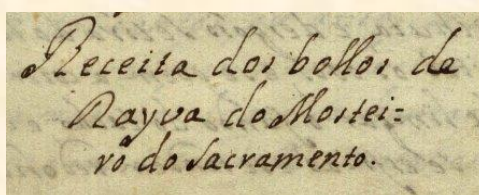 Receita dos bollos de
Rayva do Mostei=
rô do Sacramento.